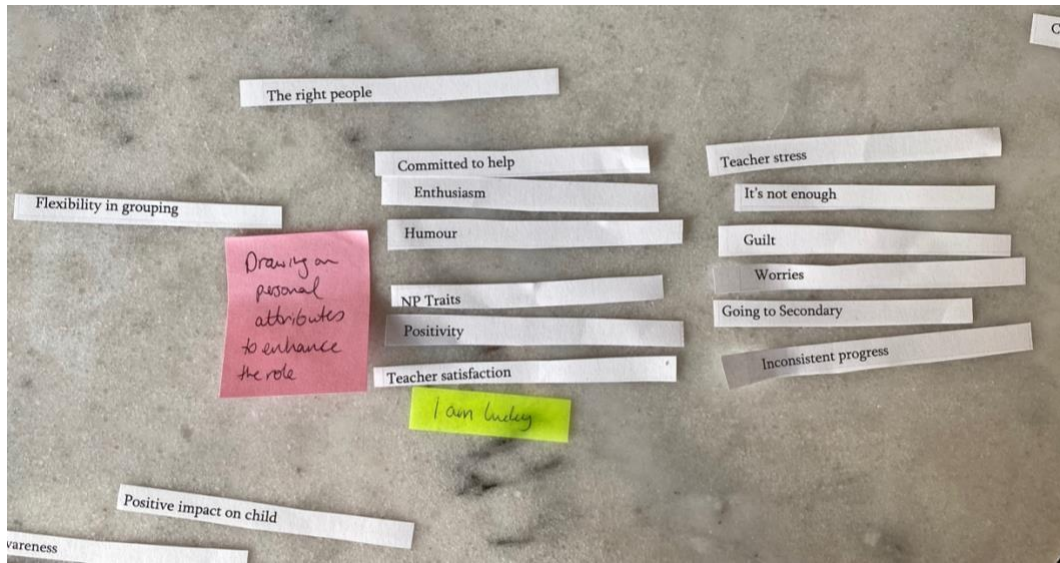 C
The right people
Flexibility in grouping
Drawing on
personal
attributes
to enhance
the role
Committed to help
Enthusiasm
Humour
NP Traits
Positivity
Teacher satisfaction
I am lucky
Teacher stress
It's not enough
Guilt
Worries
Going to Secondary
Inconsistent progress
Positive impact on child
wareness